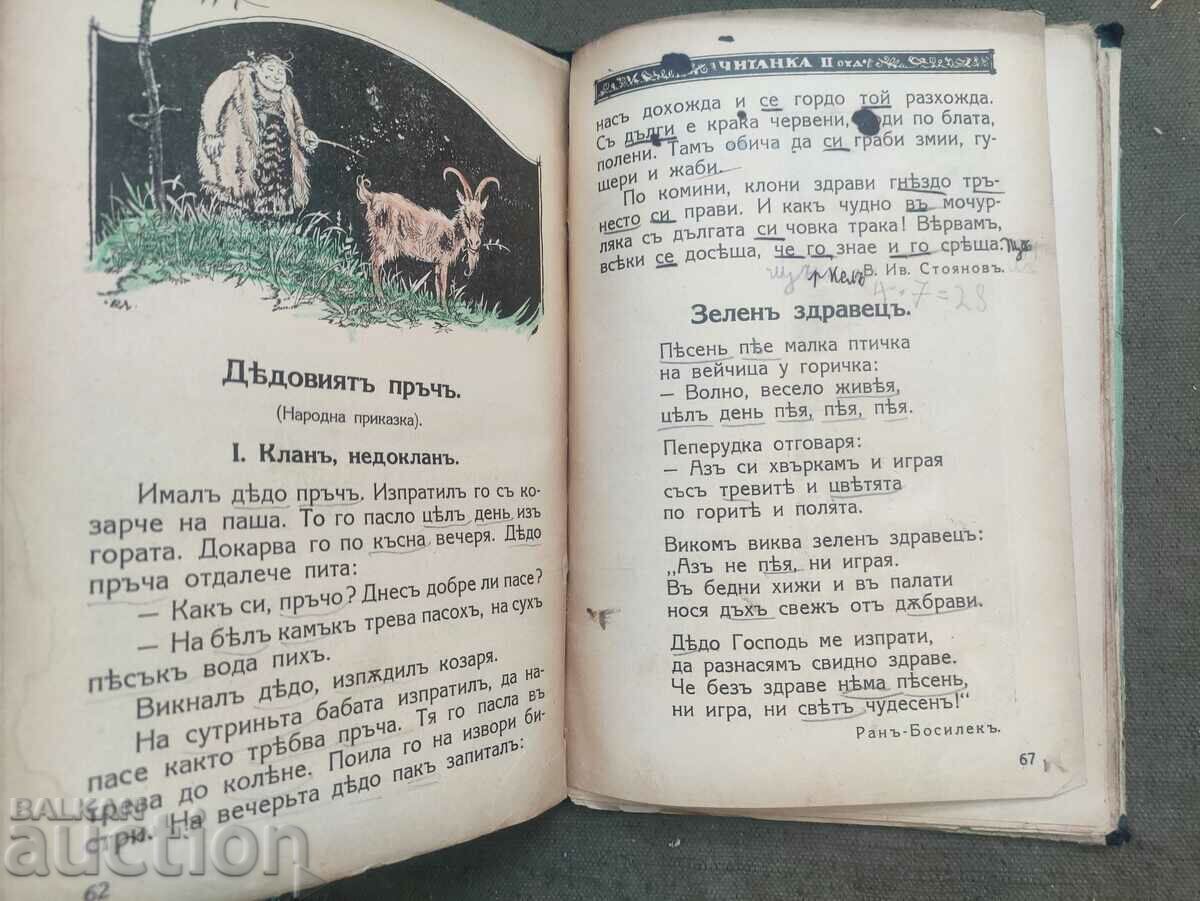 Дѣдовиятъ пръчъ.
(Народна приказка).
I. Кланъ, недокланъ.
Ималъ дѣдо пръчъ. Изпратилъ го съ ко-
зарче на паша. То го пасло цѣлъ день изъ
гората. Докарва го по късна вечеря. Дѣдо
пръча отдалече пита:
— Какъ си, пръчо? Днесъ добре ли пасе?
— На бѣлъ камъкъ трева пасохъ, на сухъ
пѣсъкъ вода пихъ.
Викналъ дѣдо, изпѫдилъ козаря.
На сутриньта бабата изпратилъ, да на-
пасе както трѣбва пръча. Тя го пасла въ
трева до колѣне. Поила го на извори би-
стри. На вечерьта дѣдо пакъ запиталъ:
62
BALKAN
auction
ЧИТАНКА II отд.
насъ дохожда и се гордо той разхожда.
Съ дълги е крака червени, ходи по блата,
полени. Тамъ обича да си граби змии, гу-
щери и жаби.
По комини, клони здрави гнѣздо тръ-
несто си прави. И какъ чудно въ мочур-
ляка съ дългата си човка трака! Вѣрвамъ,
всѣки се досѣща, че го знае и го срѣща.
В. Ив. Стояновъ.
4·7=28
Зеленъ здравецъ.
Пѣсень пѣе малка птичка
на вейчица у горичка:
— Волно, весело живѣя,
цѣлъ день пѣя, пѣя, пѣя.
Пеперудка отговаря:
— Азъ си хвъркамъ и играя
съсъ тревитѣ и цвѣтята
по горитѣ и полята.
Викомъ виква зеленъ здравецъ:
„Азъ не пѣя, ни играя.
Въ бедни хижи и въ палати
нося дъхъ свежъ отъ дѫбрави.
Дѣдо Господь ме изпрати,
да разнасямъ свидно здраве.
Че безъ здраве нѣма пѣсень,
ни игра, ни свѣтъ чудесенъ!“
Ранъ-Босилекъ.
67